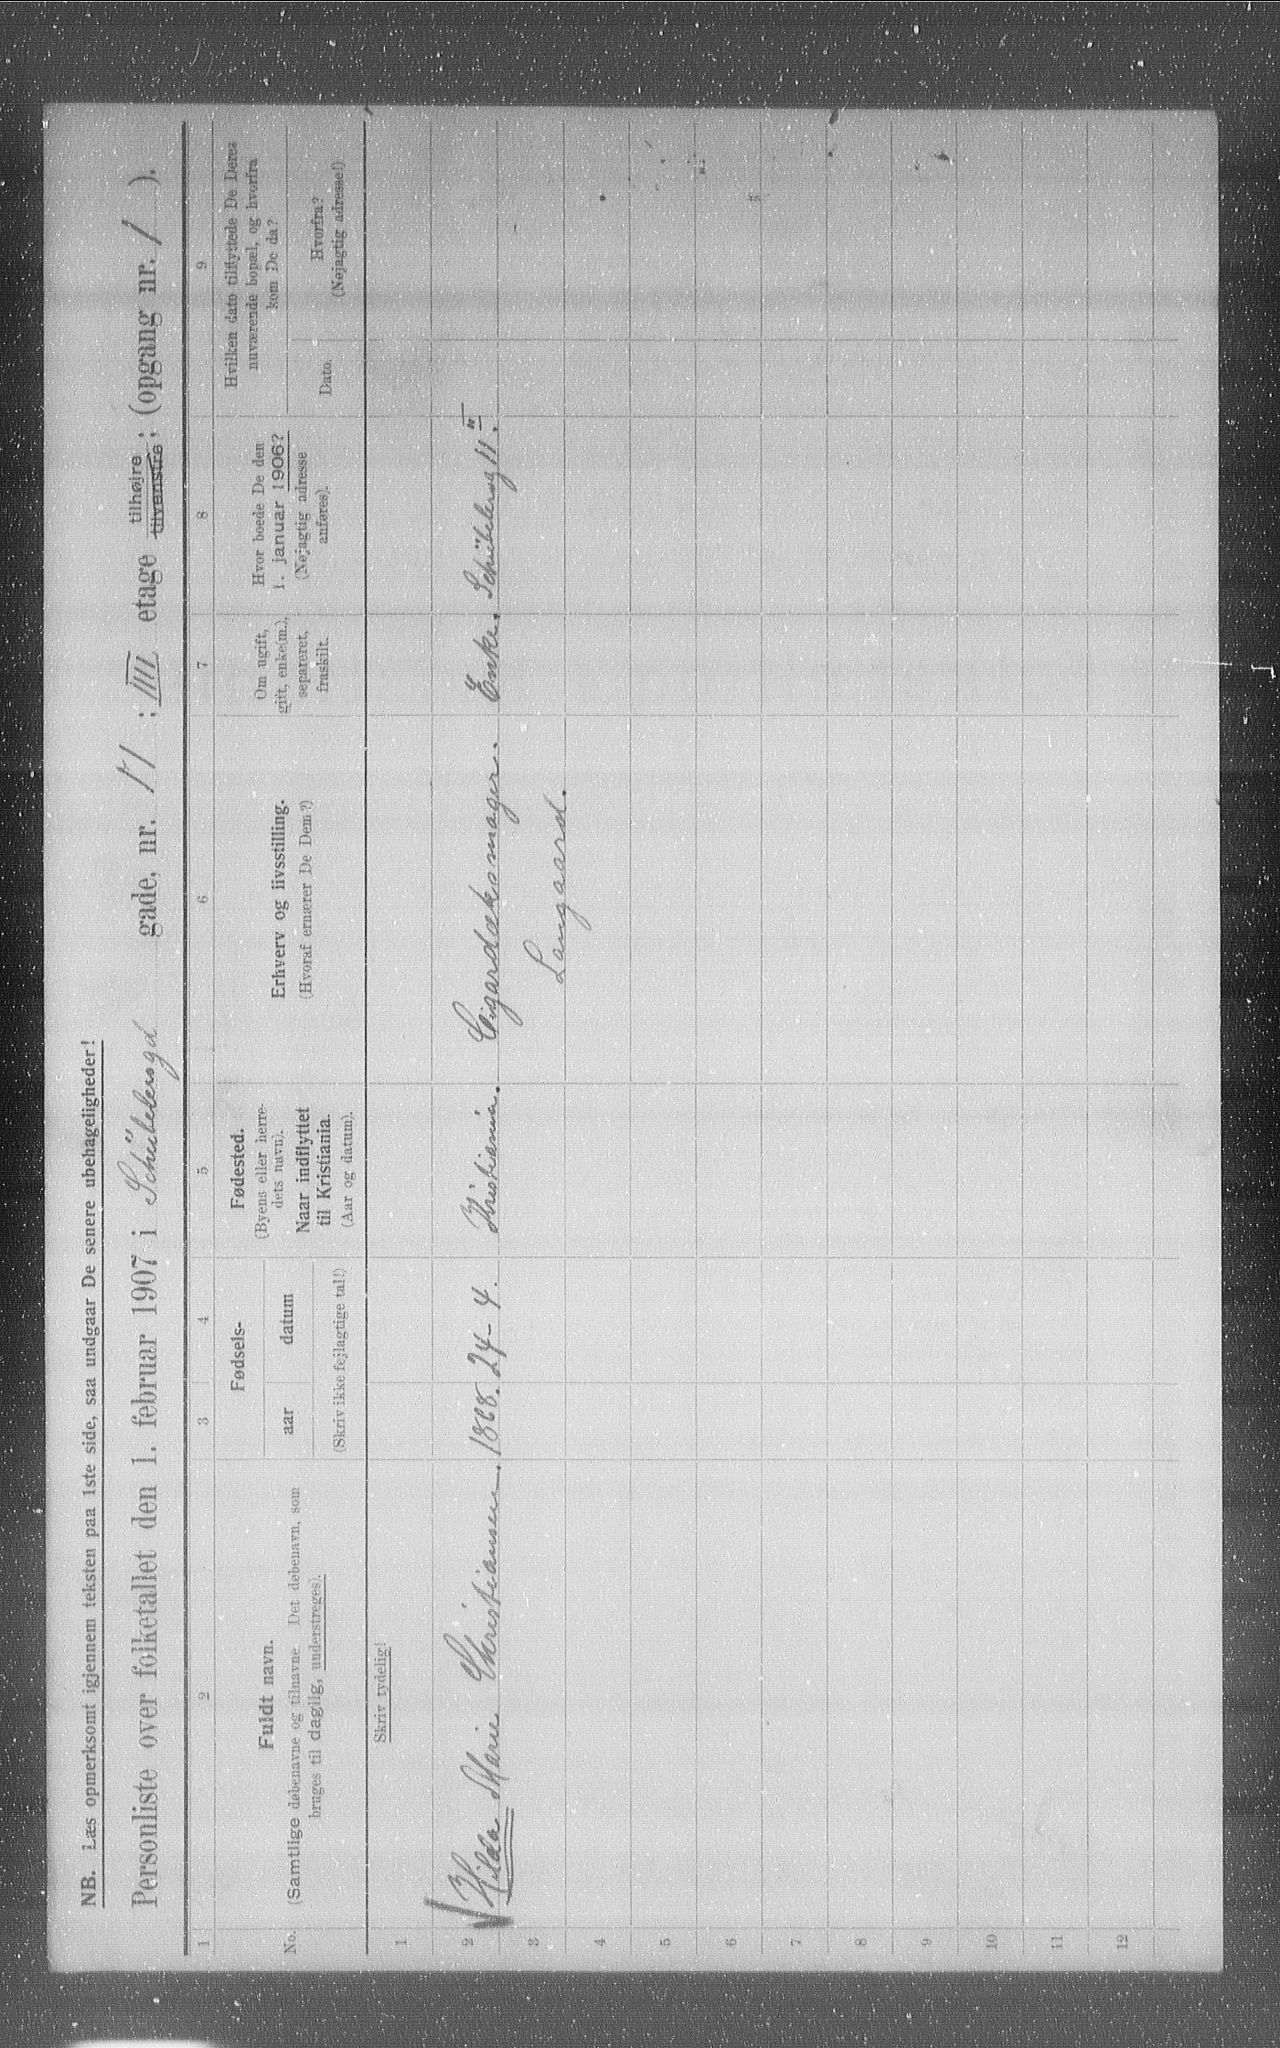 NB. Læs opmerksomt igjennem teksten paa 1ste side, saa undgaar De senere ubehageligheder!
Personliste over folketallet den 1. februar 1907 i Schübelersgd gade, nr. 11 ; IIII etage tilhøjre ; (opgang nr. 1 ).
tilvenstre
1 2 3 4 5 6 7 8 9
No.
Fuldt navn.
(Samtlige døbenavne og tilnavne. Det døbenavn, som
bruges til daglig, understreges).
Fødsels-
aar datum
(Skriv ikke fejlagtige tal!)
Fødested.
(Byens eller herre-
dets navn).
Naar indflyttet
til Kristiania.
(Aar og datum).
Erhverv og livsstilling.
(Hvoraf ernærer De Dem?)
Om ugift,
gift, enke(m.),
separeret,
fraskilt.
Hvor boede De den
1. januar 1906?
(Nøjagtig adresse
anføres).
Hvilken dato tilflyttede De Deres
nuværende bopæl, og hvorfra
kom De da?
Dato.
Hvorfra?
(Nøjagtig adresse!)
Skriv tydelig!
1
2 Hilda Marie Christiansen. 1868. 24-4. Kristiania. Cigardæksmager. Enke. Schübelersg 11
3 Langaard.
4
5
6
7
8
9
10
11
12